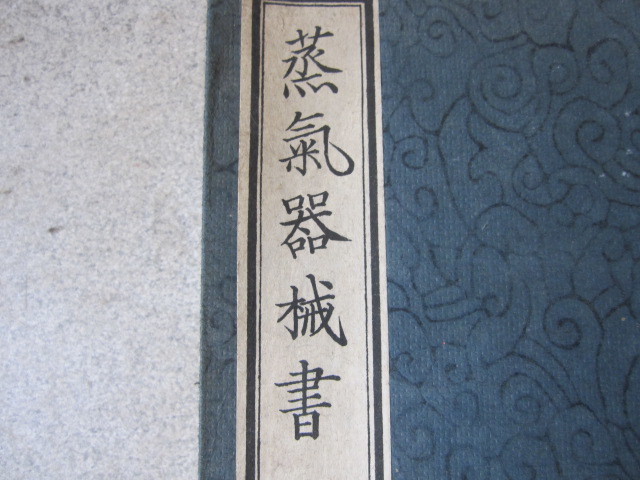 蒸氣器械書